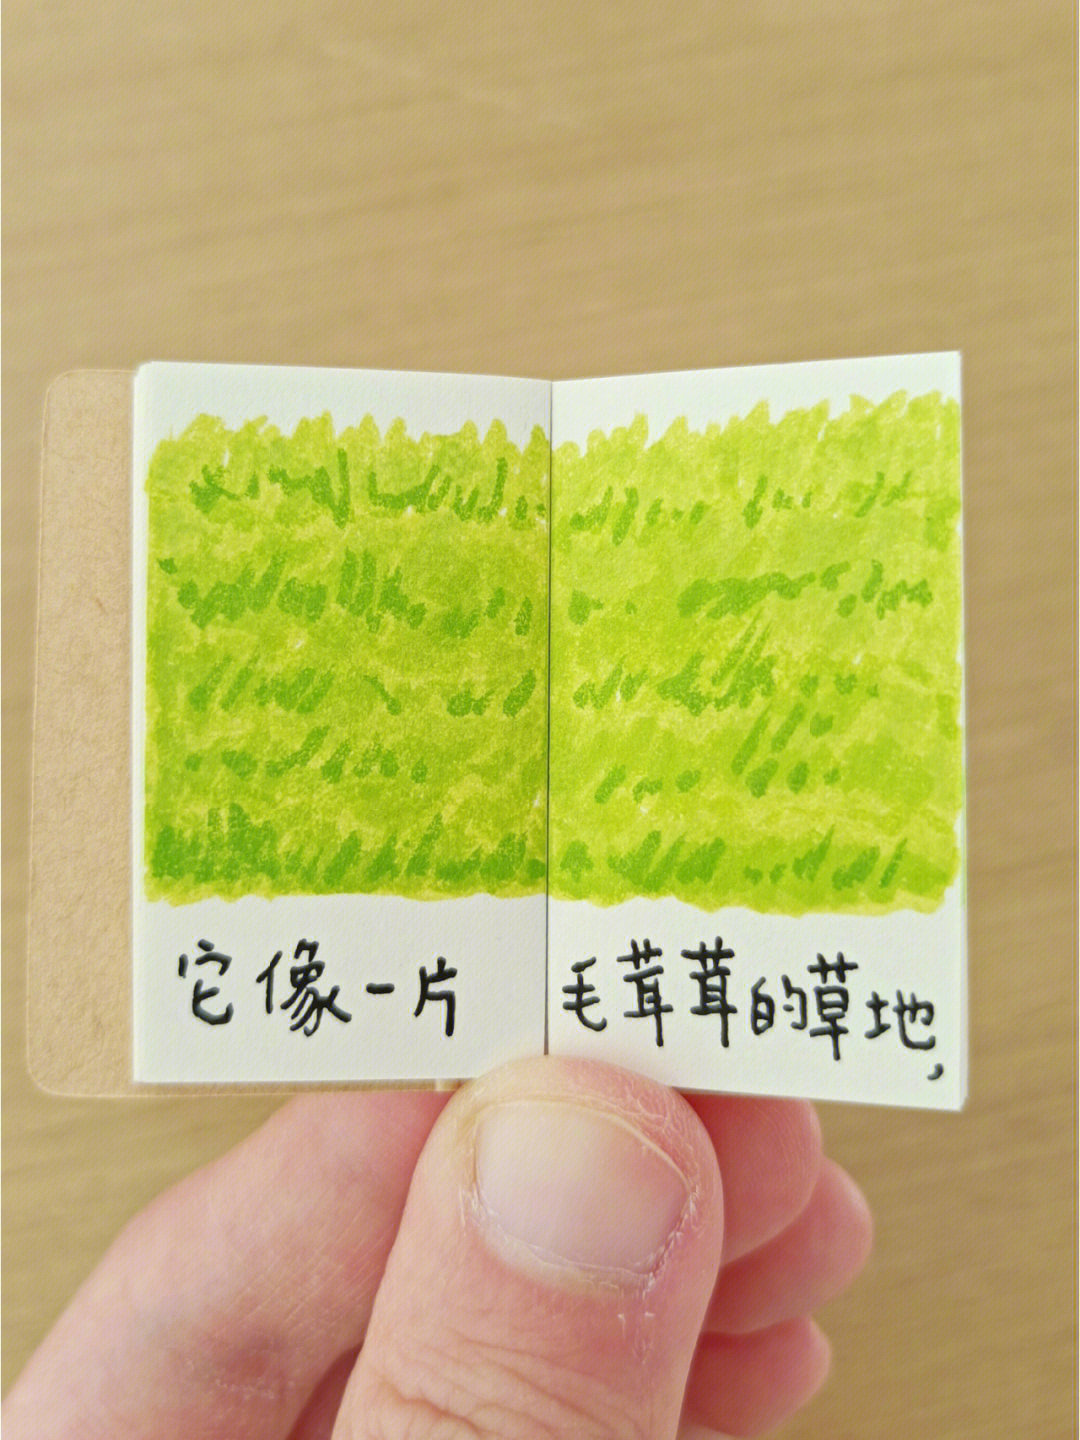 它像一片
毛茸茸的草地,